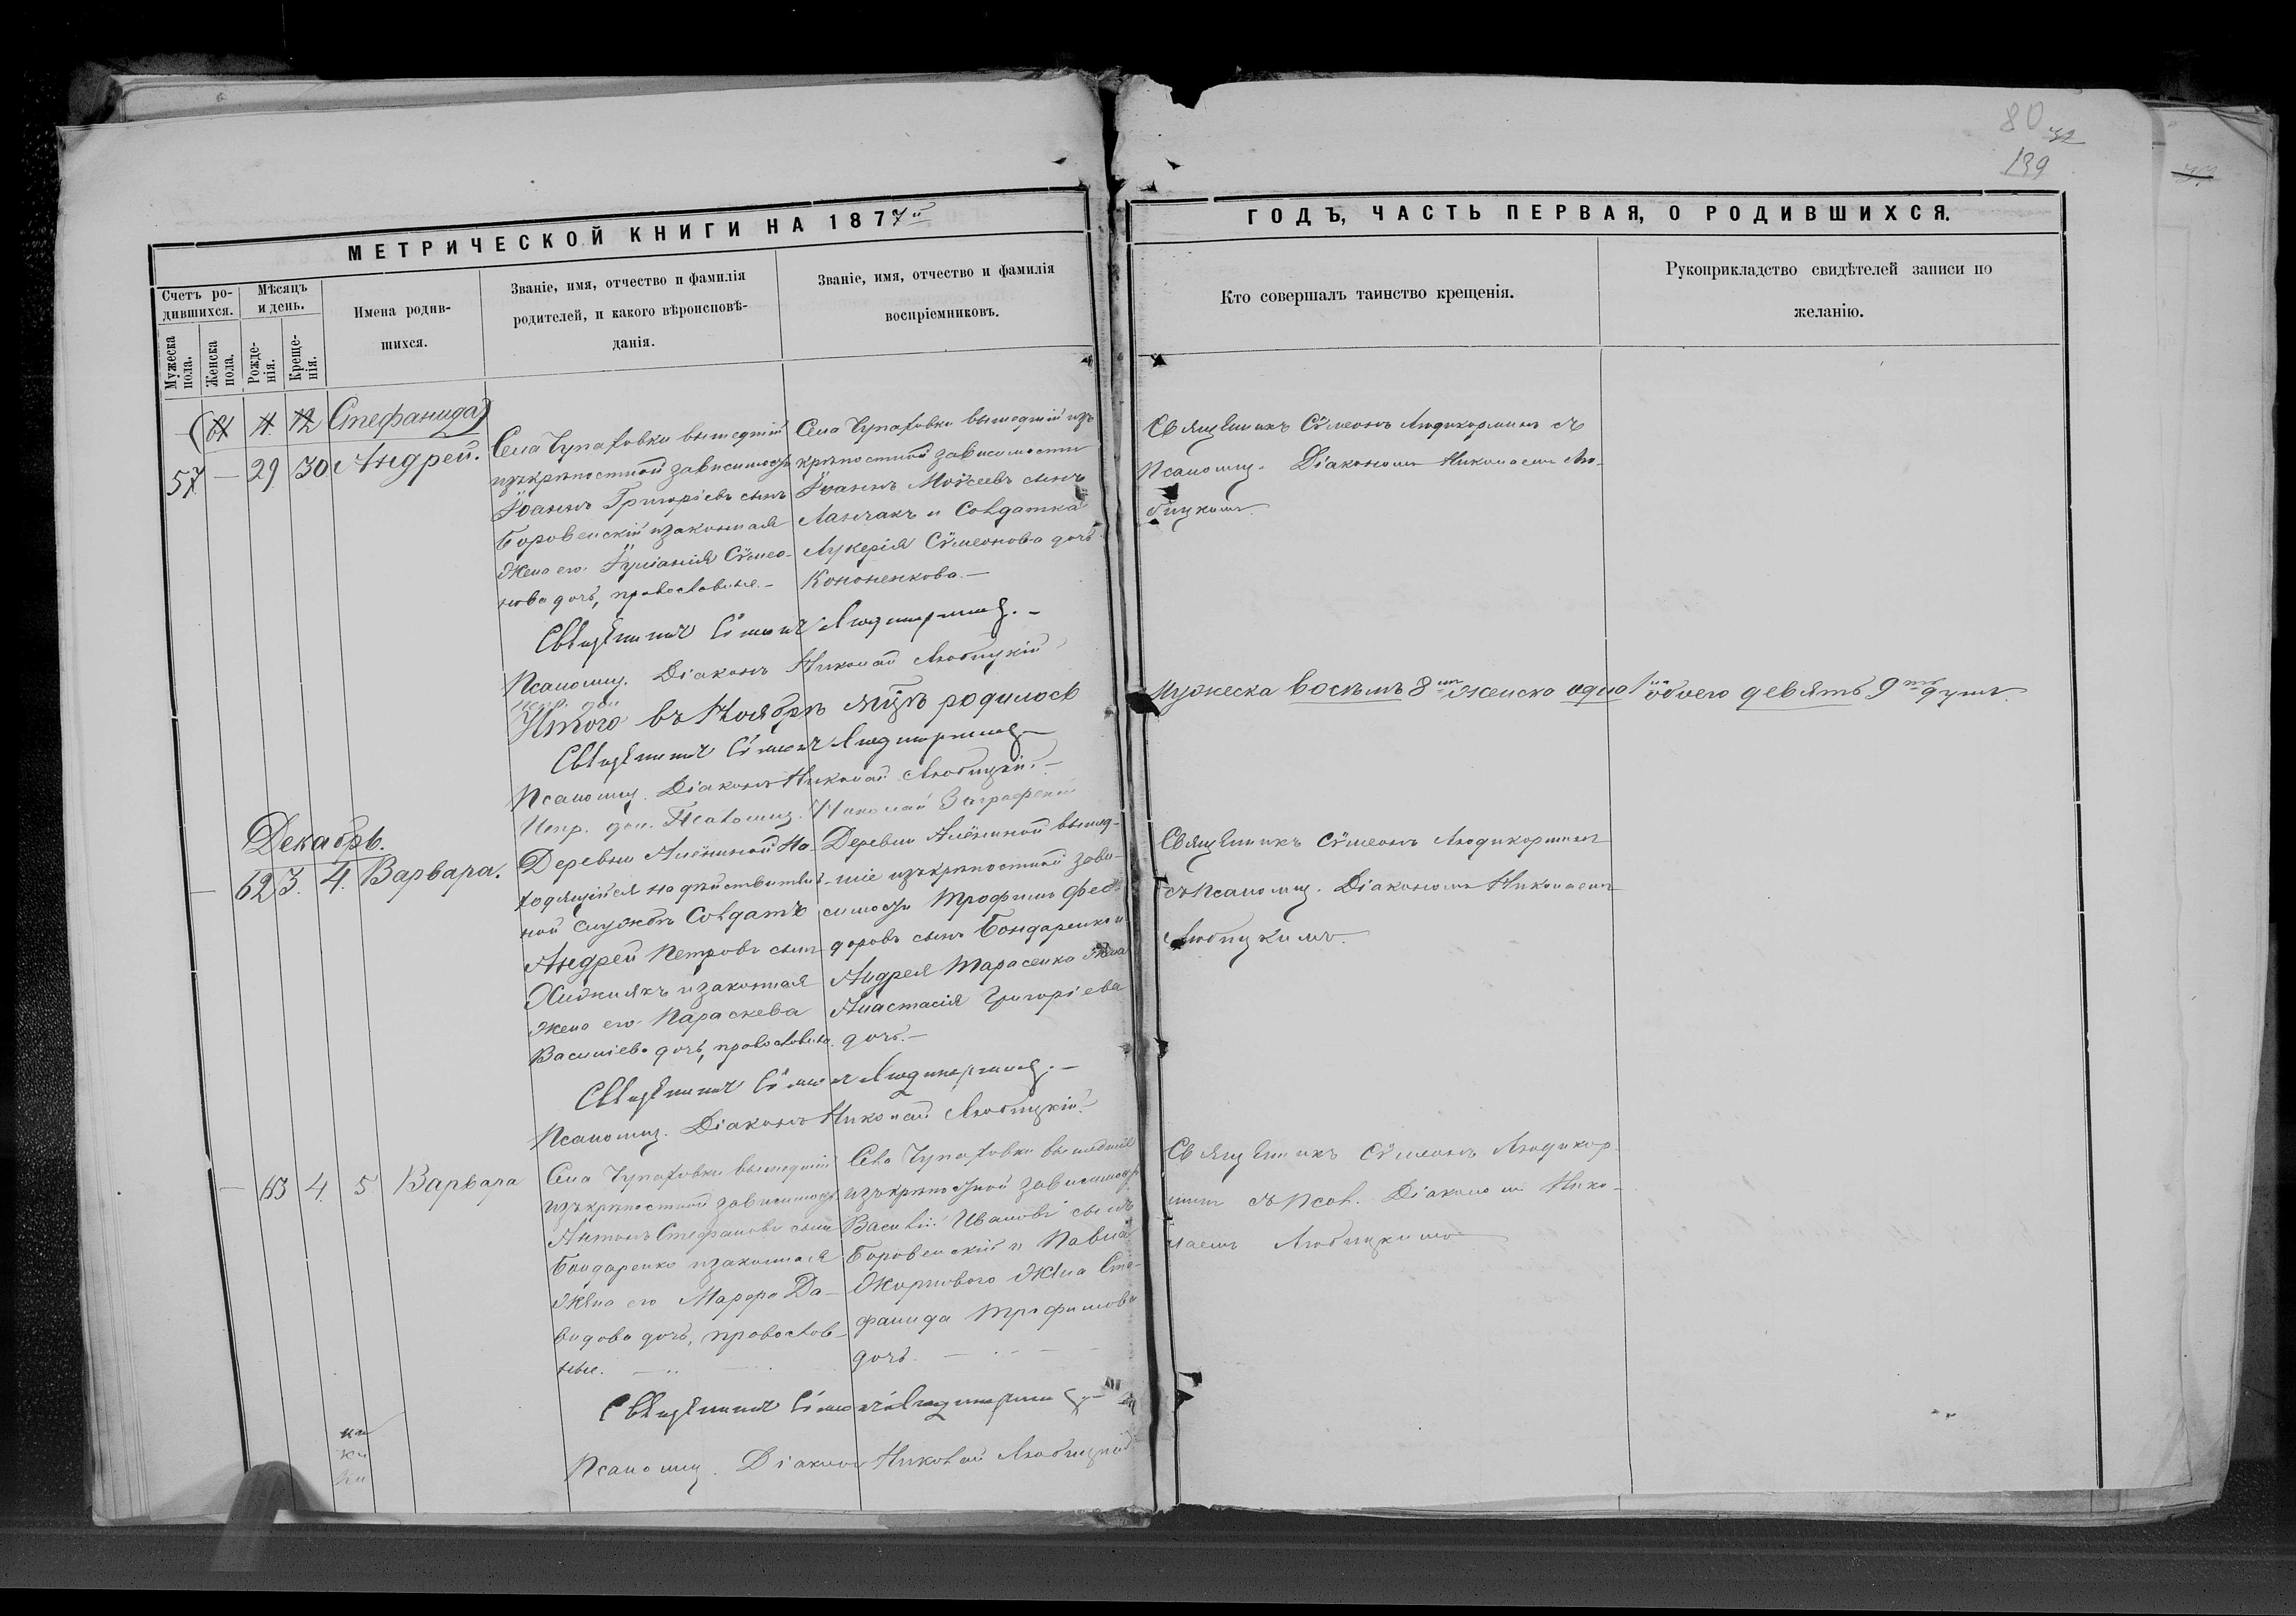 80
139
МЕТРИЧЕСКОЙ КНИГИ НА 1877й
ГОДЪ, ЧАСТЬ ПЕРВАЯ, О РОДИВШИХСЯ.
Счетъ ро-
дившихся.
Мужеска пола.
Женска пола.
Мѣсяцъ
и день.
Рожде-
нія.
Креще-
нія.
Имена родив-
шихся.
Званіе, имя, отчество и фамилія
родителей, и какого вѣроисповѣ-
данія.
Званіе, имя, отчество и фамилія
воспріемниковъ.
Кто совершалъ таинство крещенія.
Рукоприкладство свидѣтелей записи по
желанію.
(Стефанида)
57 — 29 30 Андрей.
Села Чупаховки вышедшій
изъ крѣпостной зависимости
Іоаннъ Григоріевъ сынъ
Боровенскій и законная
жена его Іуліанія Сѵмео-
нова дочь, православные. —
Села Чупаховки вышедшій изъ
крѣпостной зависимости
Іоаннъ Моѵсеевъ сынъ
Ланчакъ и Солдатка
Лукерія Сѵмеонова дочь
Кононенкова. —
Священникъ Сѵмеонъ Людикорминъ съ
Псаломщ. Діакономъ Николаемъ Лю-
бицкимъ.
Священникъ Сѵмеонъ Людикорминъ. —
Псаломщ. Діаконъ Николай Любицкій
Итого въ Ноябрѣ мцѣ родилось
Мужеска восемь 8 женска одна 1 обоего девять 9 душъ.
Священникъ Сѵмеонъ Людикорминъ —
Псаломщ. Діаконъ Николай Любицкій. —
Испр. дол. Псаломщ. Николай
Декабрь.
— 62 3. 4. Варвара.
Деревни Алёниной На-
ходящійся на дѣйствитель-
ной службѣ Солдатъ
Андрей Петровъ сынъ
Хижнякъ и законная
жена его Параскева
Василіева дочь, православн.
Деревни Алёниной вышед-
шіе изъ крѣпостной зави-
симости Трофимъ Фео-
доровъ сынъ Бондаренко и
Андрея Тарасенка жена
Анастасія Григоріева
дочь. —
Священникъ Сѵмеонъ Людикорминъ
съ Псаломщ. Діакономъ Николаемъ
Любицкимъ.
Священникъ Сѵмеонъ Людикорминъ. —
Псаломщ. Діаконъ Николай Любицкій.
— 63 4. 5 Варвара
Села Чупаховки вышедшій
изъ крѣпостной зависимости
Антонъ Стефановъ сынъ
Бондаренко и законная
жена его Марфа Да-
видова дочь, православ-
ные. —
Села Чупаховки вышедшіе
изъ крѣпостной зависимости
Василій Ивановъ сынъ
Боровенскій и Павла
Жорнового жена Сте-
фанида Трофимова
дочь. —
Священникъ Сѵмеонъ Людикор-
минъ съ Псал. Діакономъ Нико-
лаемъ Любицкимъ
Священникъ Сѵмеонъ Людикорминъ —
Псаломщ. Діаконъ Николай Любицкій